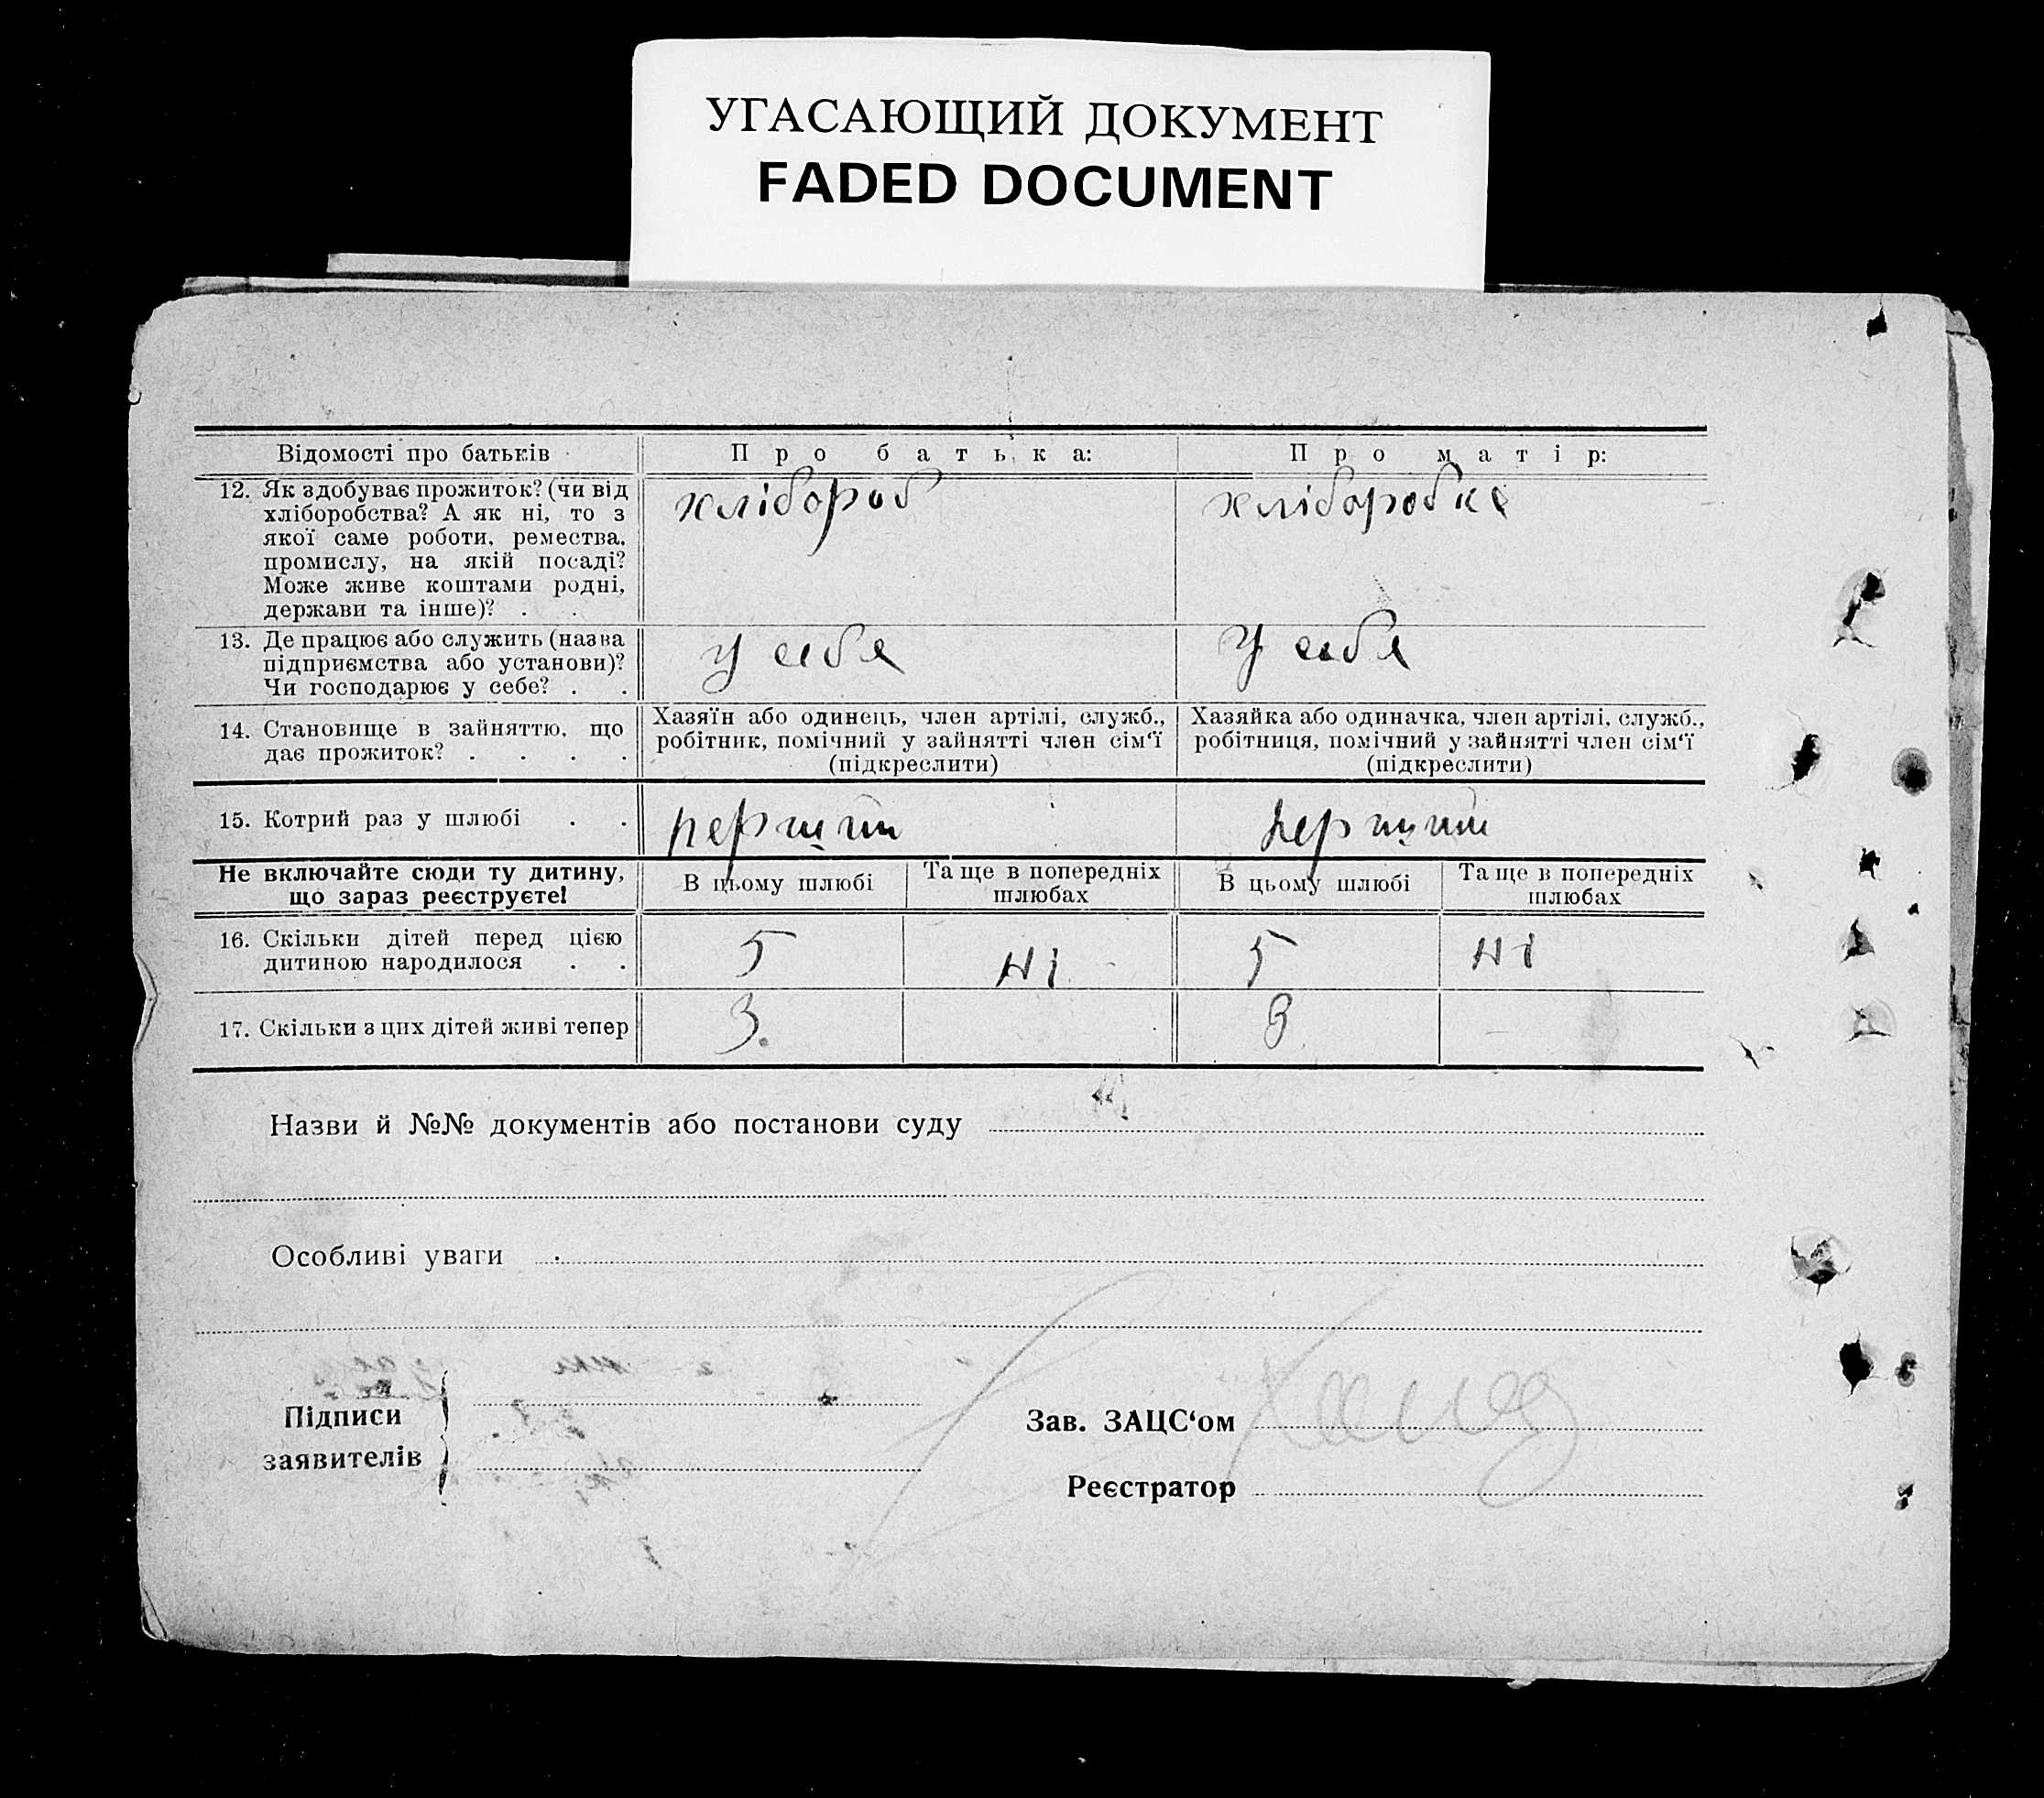 УГАСАЮЩИЙ ДОКУМЕНТ
FADED DOCUMENT
Відомості про батьків
Про батька:
Про матір:
12. Як здобуває прожиток? (чи від
хліборобства? А як ні, то з
якої саме роботи, ремества,
промислу, на якій посаді?
Може живе коштами родні,
держави та інше)? .
хлібороб
хліборобка
13. Де працює або служить (назва
підприємства або установи)?
Чи господарює у себе? . .
у себе
у себе
14. Становище в зайняттю, що
дає прожиток? . . . .
Хазяїн або одинець, член артілі, служб.,
робітник, помічний у зайнятті член сім'ї
(підкреслити)
Хазяйка або одиначка, член артілі, служб.,
робітниця, помічний у зайнятті член сім'ї
(підкреслити)
15. Котрий раз у шлюбі . .
перший
перший
Не включайте сюди ту дитину,
що зараз реєструєте!
В цьому шлюбі
Та ще в попередніх
шлюбах
В цьому шлюбі
Та ще в попередніх
шлюбах
16. Скільки дітей перед цією
дитиною народилося . .
5
Ні
5
Ні
17. Скільки з цих дітей живі тепер
3.
3
Назви й №№ документів або постанови суду
Особливі уваги
Підписи
заявителів
Зав. ЗАЦС'ом
Реєстратор